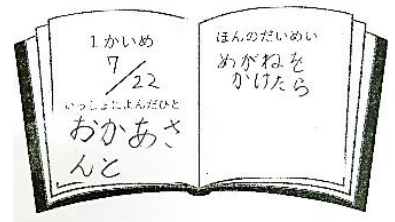 1かいめ
7/22
いっしょによんだひと
おかあさ
んと
ほんのだいめい
めがねを
かけたら